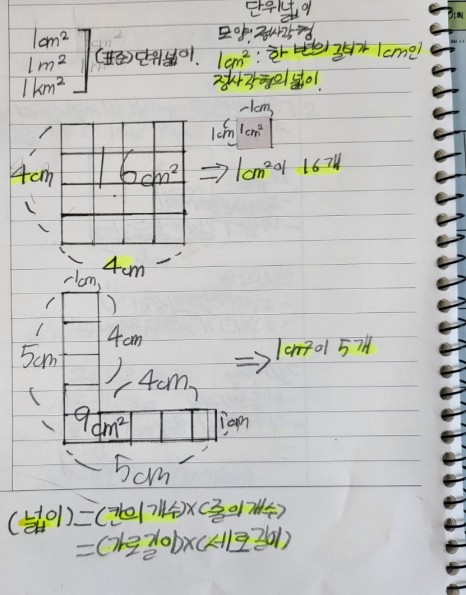 단위넓이
1cm²
1m²
1km²
(표준)단위넓이.
모양: 정사각형
1cm²: 한 변의 길이가 1cm인
정사각형의 넓이.
1cm
1cm
1cm²
4cm
16cm²
⇒ 1cm²이 16개
4cm
1cm
5cm
4cm
⇒ 1cm²이 5개
4cm
9cm²
1cm
5cm
(넓이)=(칸의 개수)×(줄의 개수)
=(가로길이)×(세로길이)